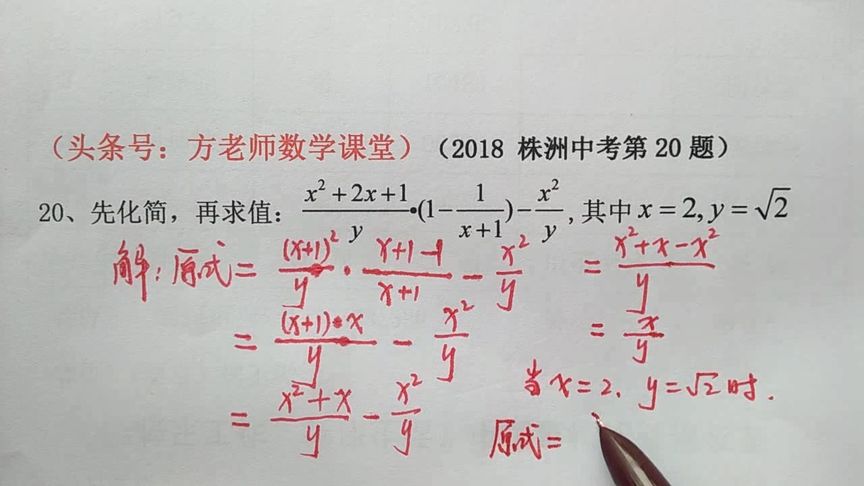 （头条号：方老师数学课堂）（2018 株洲中考第 20 题）
20、先化简，再求值：(x²+2x+1)/y•(1-1/(x+1))-x²/y,其中 x=2,y=√2
解：原式= (x+1)²/y · (x+1-1)/(x+1) - x²/y
= (x+1)•x/y - x²/y
= (x²+x)/y - x²/y
= (x²+x-x²)/y
= x/y
当 x=2. y=√2时.
原式=